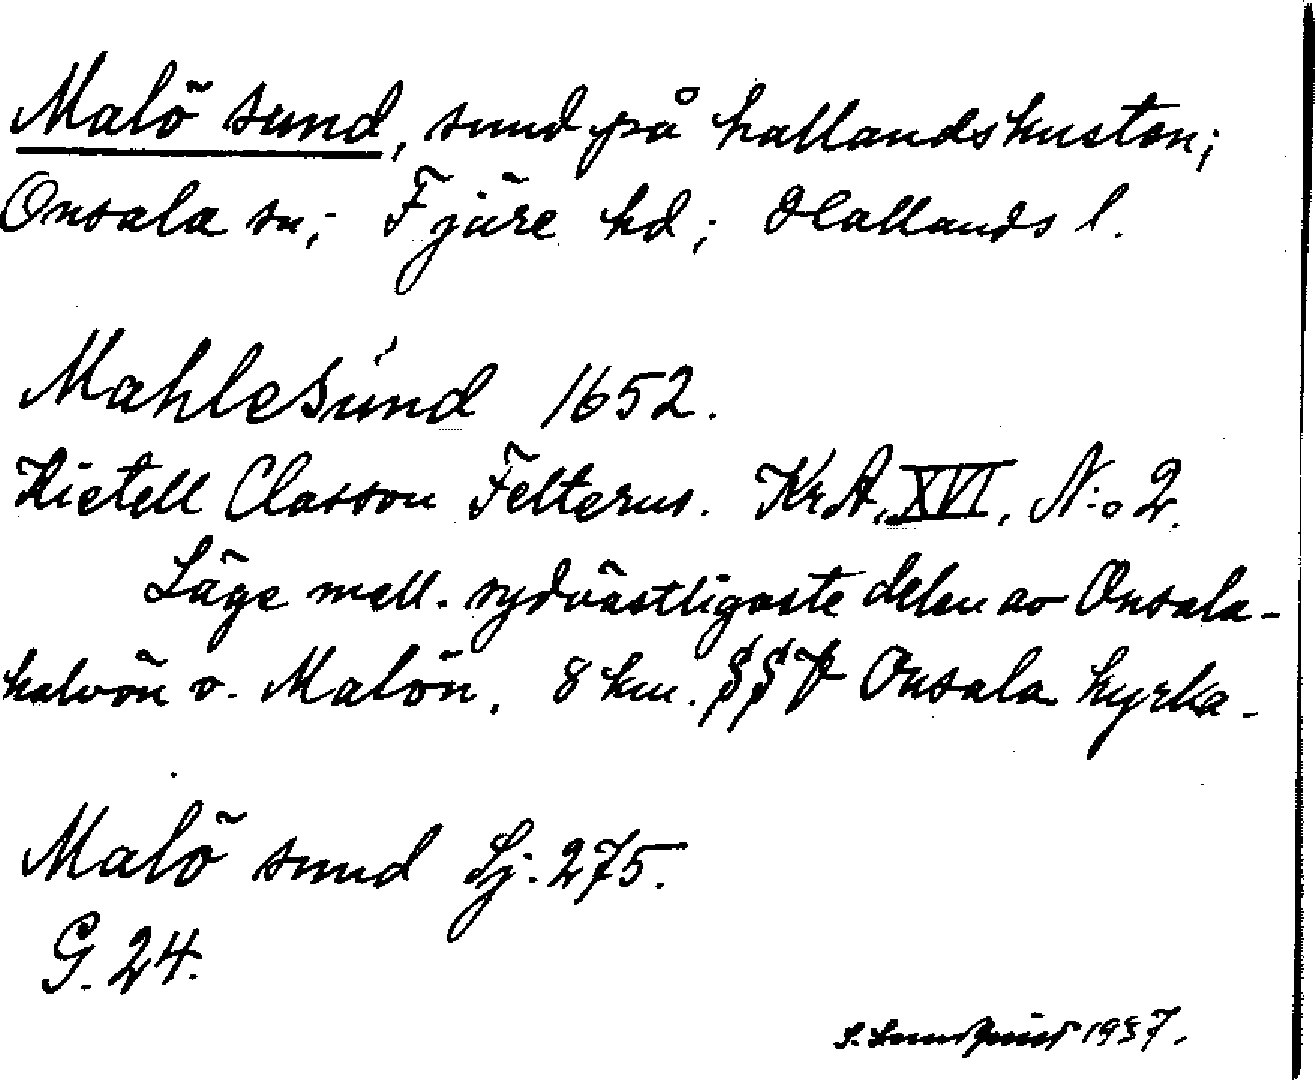 Malö sund, sund på hallandskusten;
Onsala sn; Fjäre hd; Hallands l.
Mahlesund 1652.
Kietell Classon Felterus. Kr.A. XVI, N:o 2.
Läge mell. sydvästligaste delen av Onsala-
halvön o. Malön. 8 km. SSV Onsala kyrka.
Malö sund Sj. 275.
G. 24.
S. Lundquist 1937.